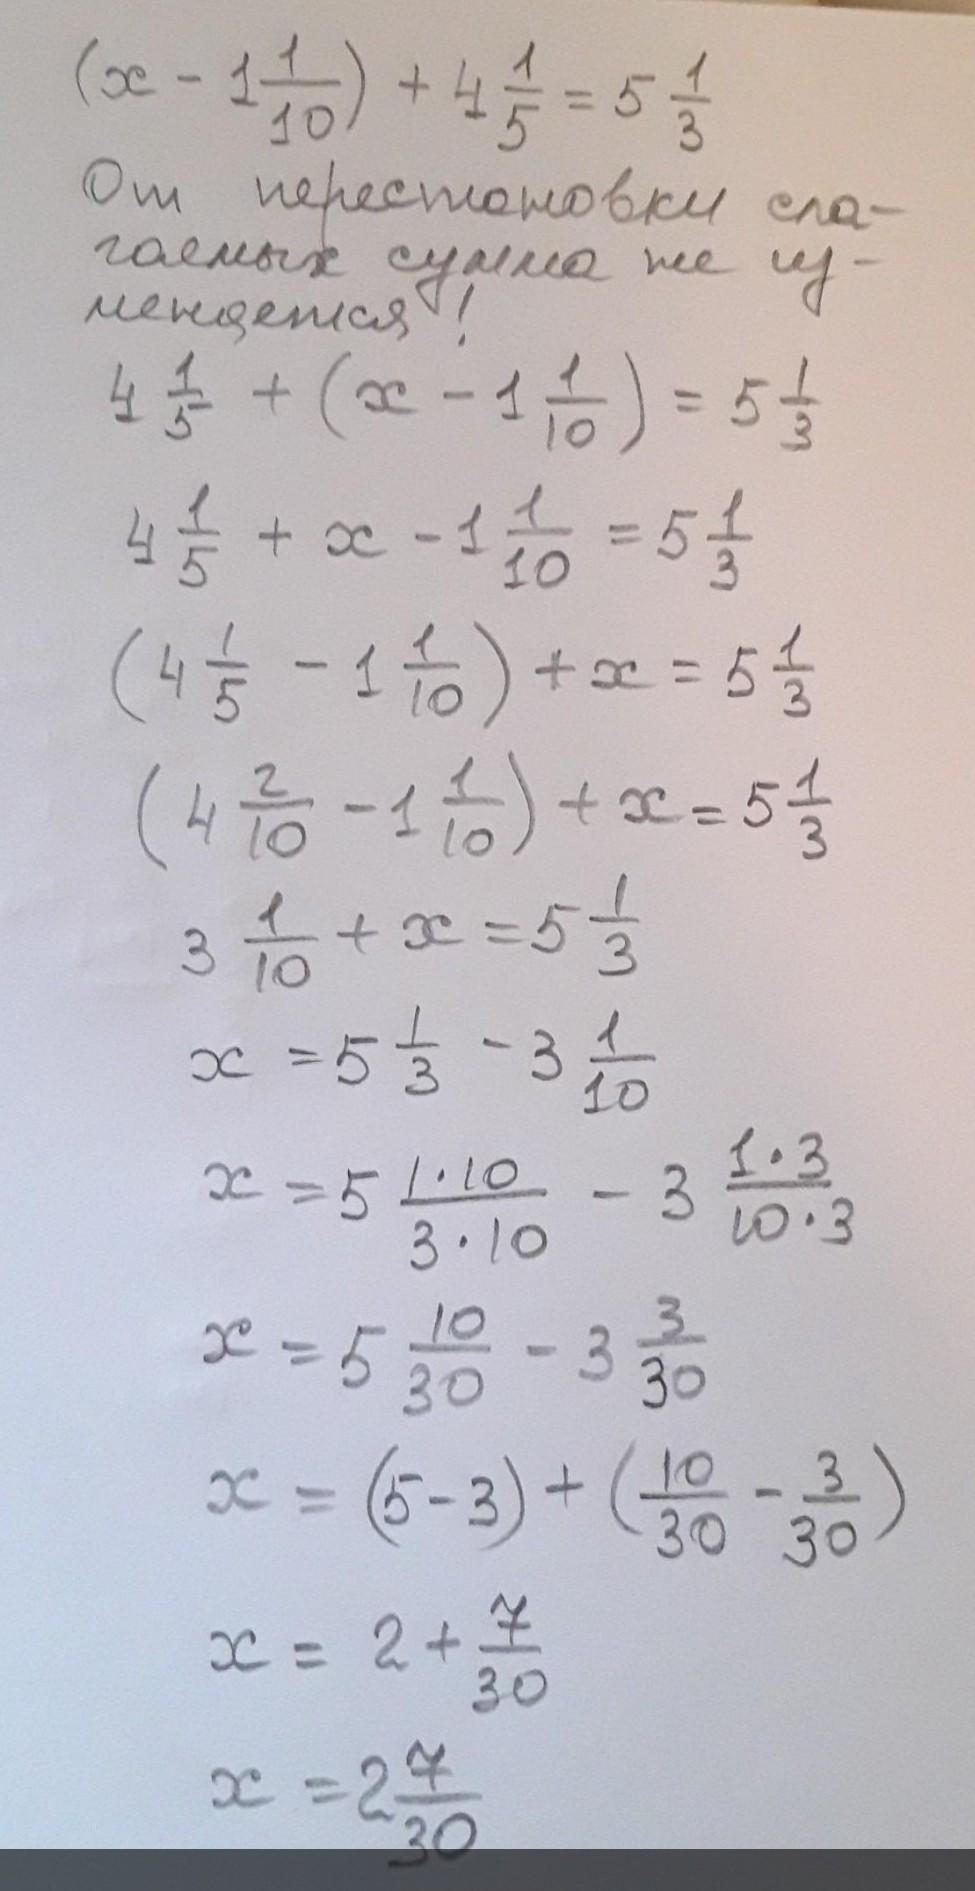 (x - 1 1/10) + 4 1/5 = 5 1/3
От перестановки сла-
гаемых сумма не из-
меняется!
4 1/5 + (x - 1 1/10) = 5 1/3
4 1/5 + x - 1 1/10 = 5 1/3
(4 1/5 - 1 1/10) + x = 5 1/3
(4 2/10 - 1 1/10) + x = 5 1/3
3 1/10 + x = 5 1/3
x = 5 1/3 - 3 1/10
x = 5 1·10/3·10 - 3 1·3/10·3
x = 5 10/30 - 3 3/30
x = (5 - 3) + (10/30 - 3/30)
x = 2 + 7/30
x = 2 7/30